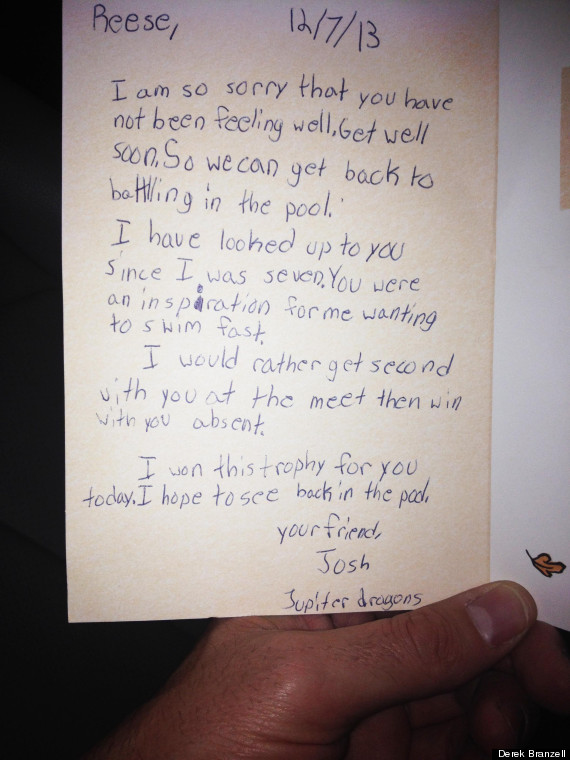 Reese, 12/7/13
I am so sorry that you have
not been feeling well. Get well
soon. So we can get back to
battling in the pool.
I have looked up to you
since I was seven. You were
an inspiration for me wanting
to swim fast.
I would rather get second
with you at the meet then win
with you absent.
I won this trophy for you
today. I hope to see back in the pool.
your friend,
Josh
Jupiter dragons
Derek Branzell